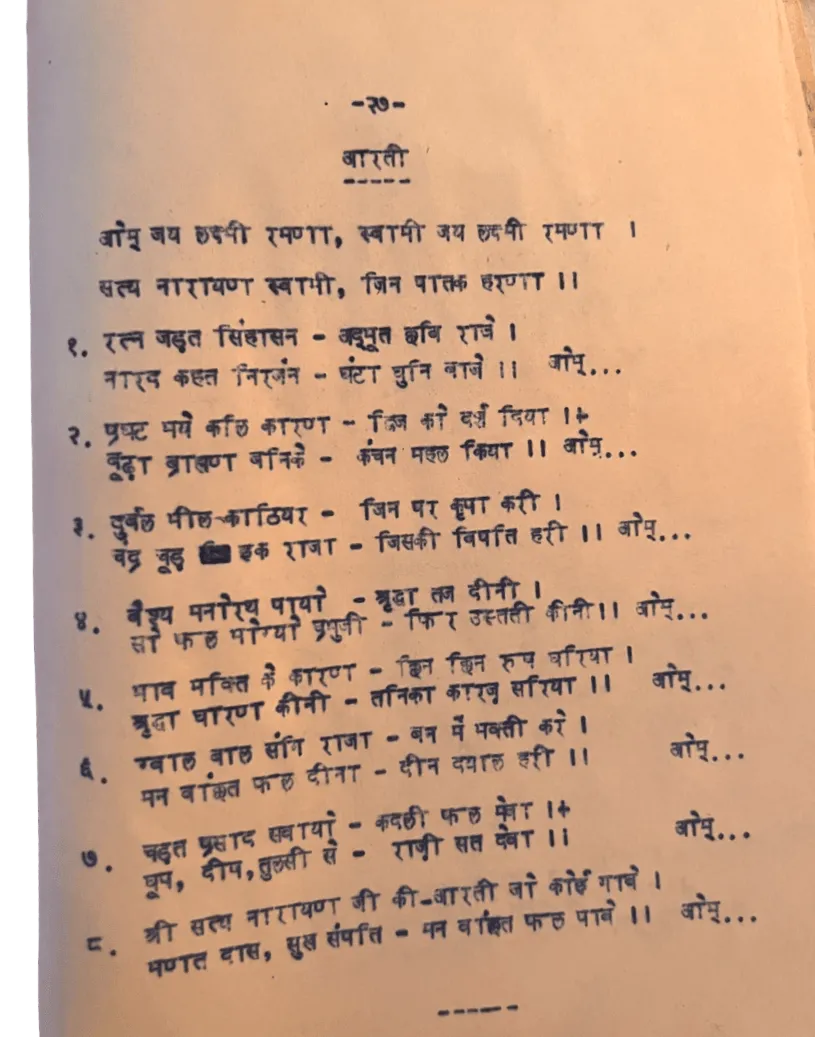 -२७-
आरती
ओम् जय लक्ष्मी रमणा, स्वामी जय लक्ष्मी रमणा ।
सत्य नारायण स्वामी, जिन पातक हरणा ।।
१. रत्न जड़त सिंहासन - अद्भूत छवि राजे ।
नारद कहत निरजंन - घंटा धुनि बाजे ।। ओम्...
२. प्रघट भये कलि कारण - द्विज को दर्श दिया ।।
बूढ़ा ब्राह्मण बनिके - कंचन महल किया ।। ओम्...
३. दुर्बल भील काठियर - जिन पर कृपा करी ।
चंद्र चूड़ इक राजा - जिसकी विपति हरी ।। ओम्...
४. वैश्य मनोरथ पायो - श्रृद्धा तज दीनी ।
सो फल भोग्यो प्रभुजी - फिर उस्तती कीनी ।। ओम्...
५. भाव भक्ति के कारण - छिन छिन रुप धरिया ।
श्रृद्धा धारण कीनी - तनिका कारजृ सरिया ।। ओम्...
६. ग्वाल बाल संगि राजा - बन में भक्ती करे ।
मन वांछित फल दीना - दीन दयाल हरी ।। ओम्...
७. चढ़त प्रसाद सवायो - कदली फल मेवा ।।
धूप, दीप, तुलसी से - राज़ी सत देवा ।। ओम्...
८. श्री सत्य नारायण जी की-आरती जो कोई गावे ।
भणत दास, सुख संपति - मन वांछित फल पावे ।। ओम्...